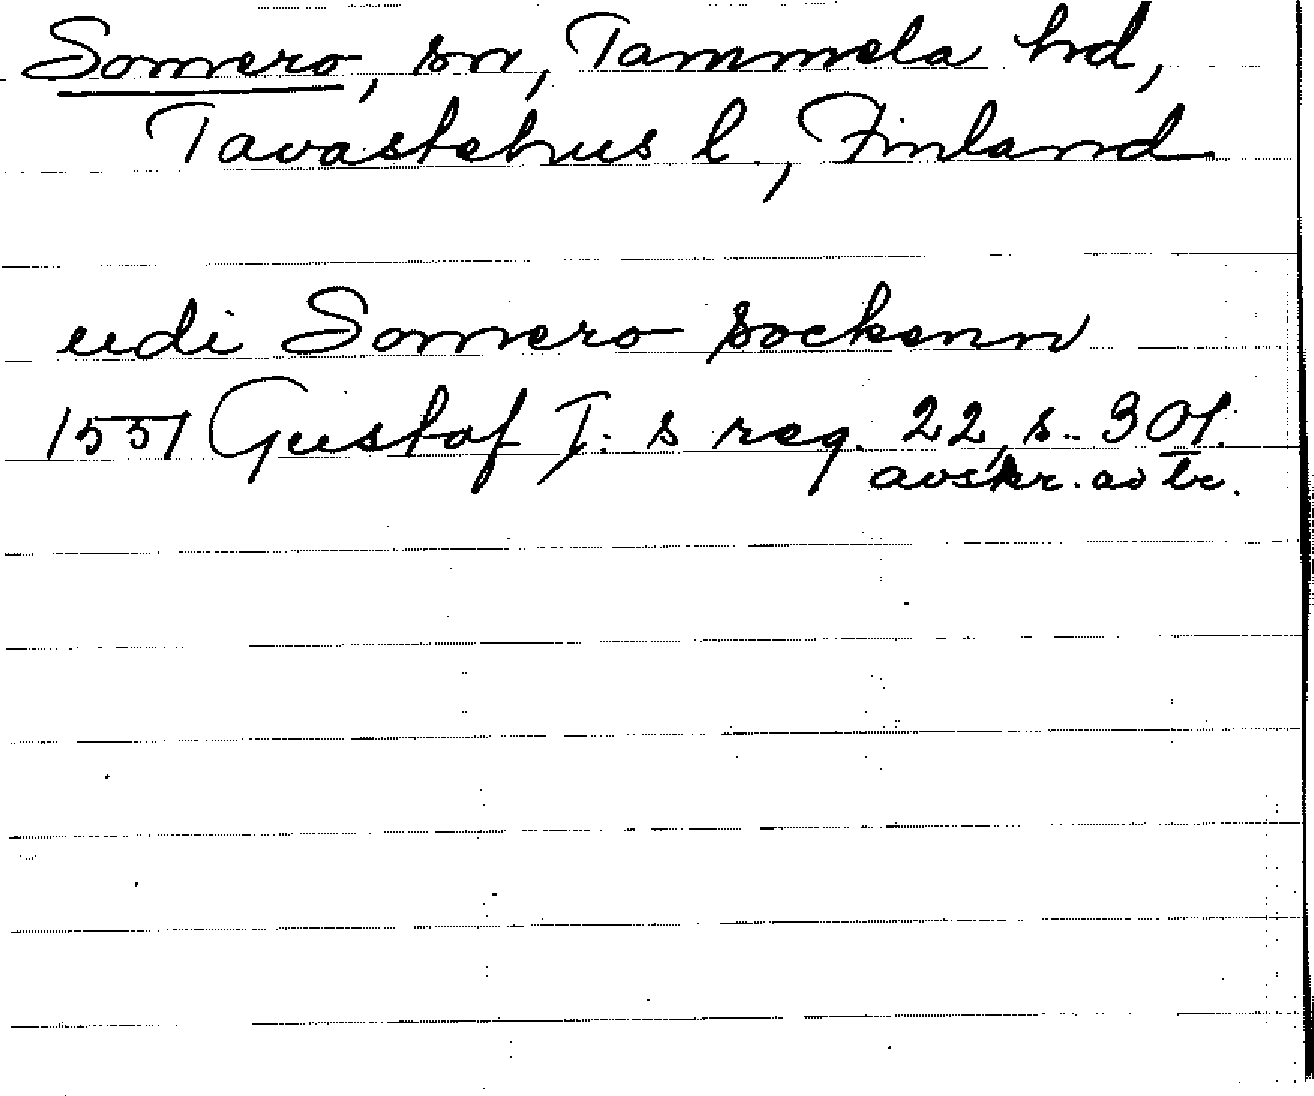 Somero, sn, Tammela hd,
Tavastehus l., Finland
udi Somero sockenn
1551 Gustaf I:s reg. 22, s. 301.
avskr. av br.